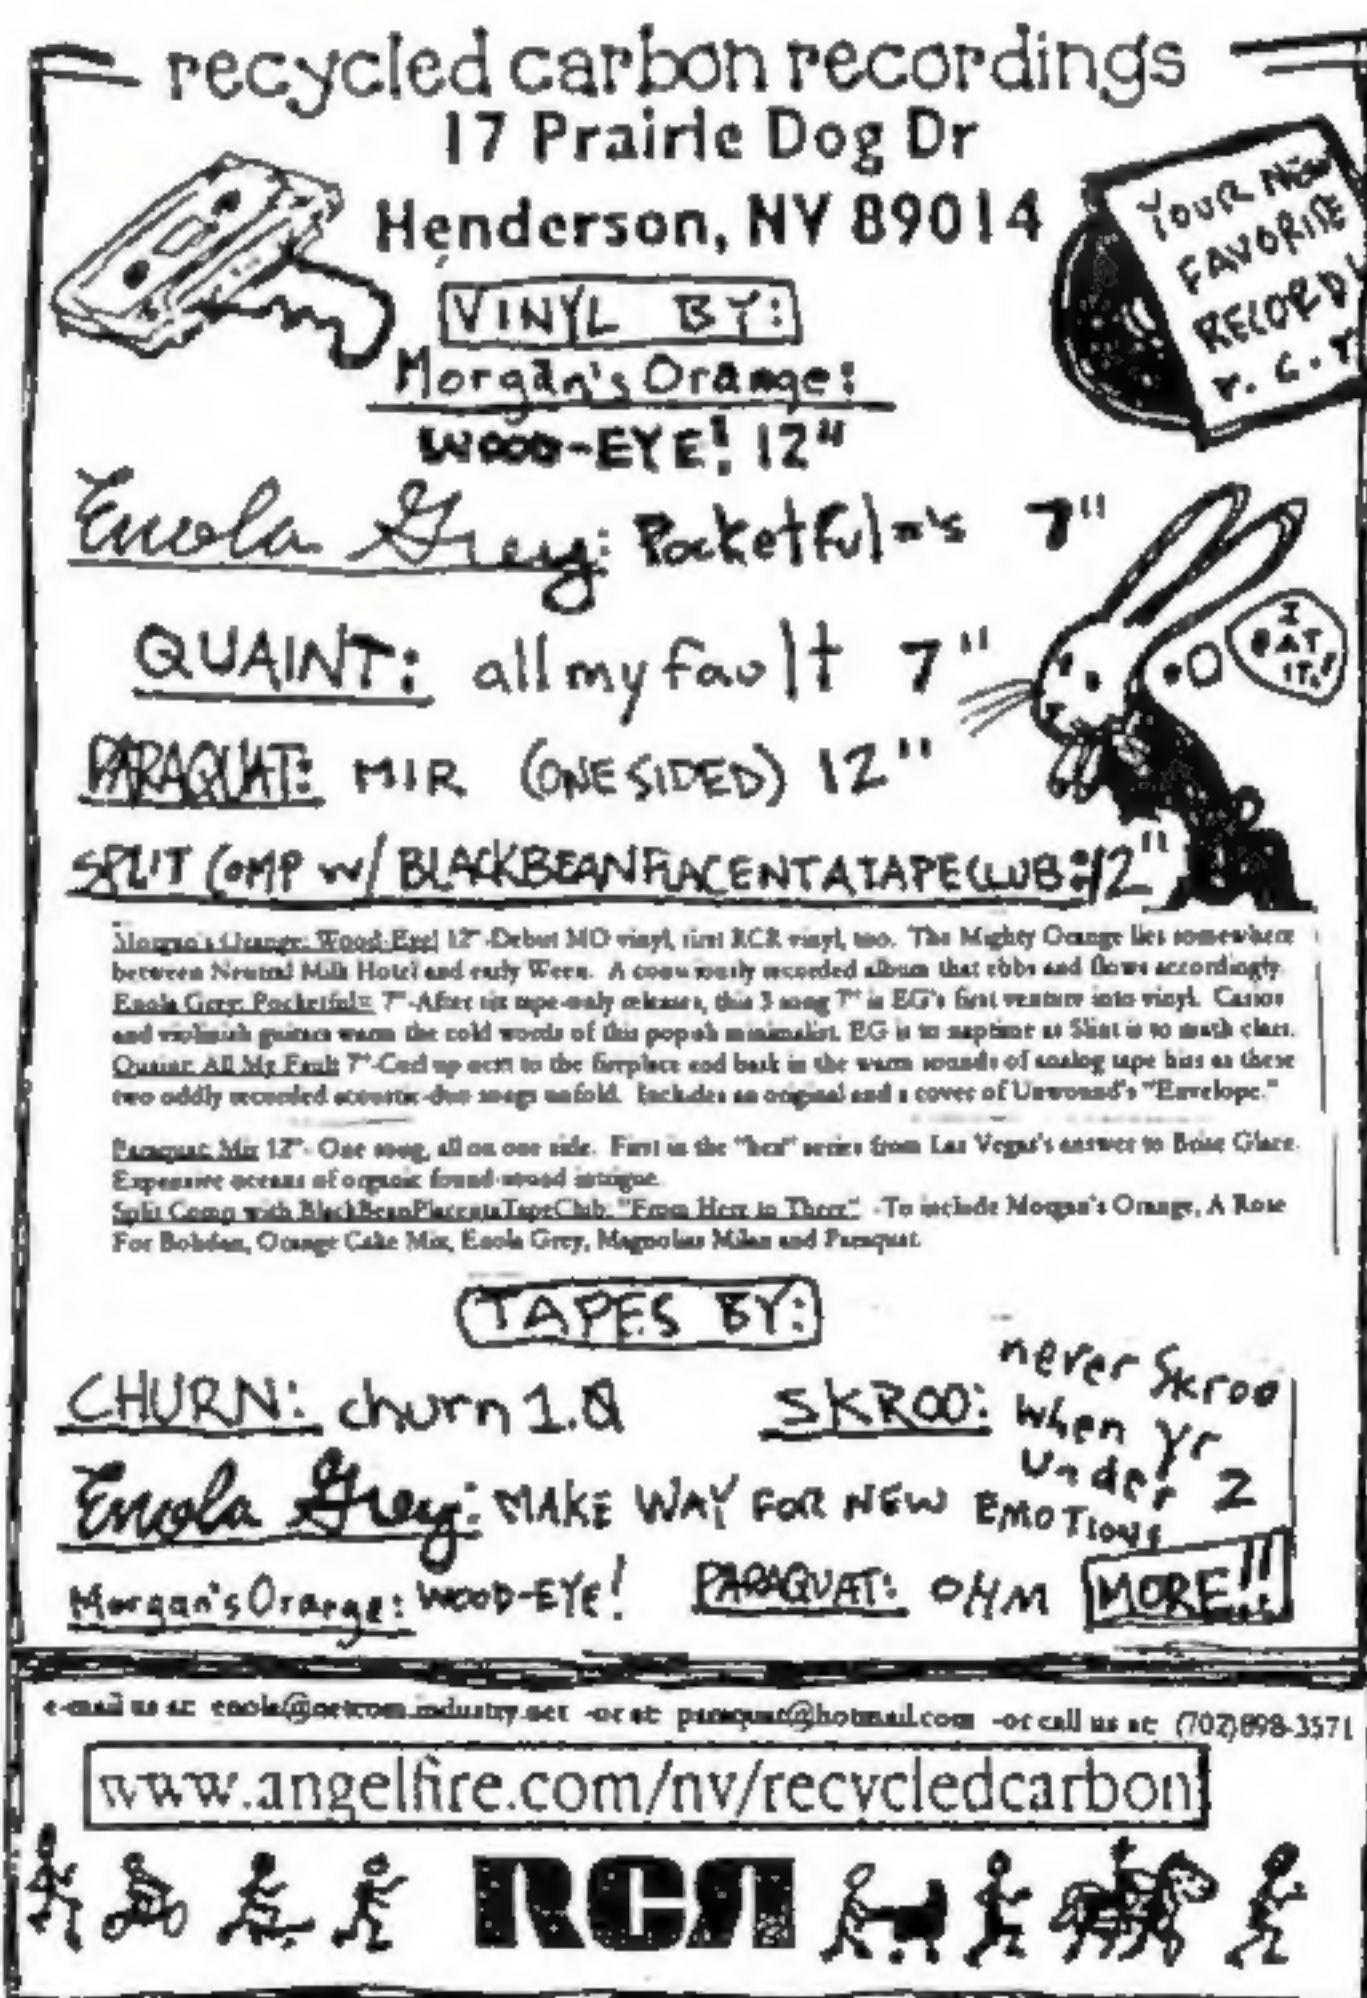 recycled carbon recordings
17 Prairie Dog Dr
Henderson, NV 89014
YOUR NEW
FAVORITE
RECORD!
VINYL BY:
Morgan's Orange:
WOOD-EYE! 12"
Enola Grey: Pocketful 7"
QUAINT: all my fault 7"
I
EAT
IT!
PARAQUAT: MIR (ONE SIDED) 12"
SPLIT COMP W/ BLACKBEANPLACENTATAPECLUB: 12"
Morgan's Orange: Wood-Eye! 12"-Debut MO vinyl, first RCR vinyl, too. The Mighty Orange lies somewhere
between Neutral Milk Hotel and early Ween. A recorded album that ebbs and flows accordingly.
Enola Grey: Pocketful 7"-After six tape-only releases, this 3 song 7" is EG's first venture into vinyl. Casios
and violinish guitars warm the cold words of this popish minimalist. EG is to naptime as Slint is to math class.
Quaint: All My Fault 7"-Curl up next to the fireplace and bask in the warm sounds of analog tape hiss as these
two oddly recorded acoustic-duo songs unfold. Includes an original and a cover of Unwound's "Envelope."
Paraquat: Mir 12"- One song, all on one side. First in the series from Las Vegas's answer to Boise Glace.
oceans of organic found-sound intrigue.
Split Comp with BlackBeanPlacentaTapeClub: "From Here to There" -To include Morgan's Orange, A Rose
For Bohdan, Orange Cake Mix, Enola Grey, Magnolias Milan and Paraquat.
TAPES BY:
CHURN: churn 1.0
SKROO: never skroo
when yr
under 2
Enola Grey: MAKE WAY FOR NEW EMOTIONS
Morgan's Orange: WOOD-EYE! PARAQUAT: OHM MORE!!
e-mail us at: enola@netcom.industry.net -or at: paraquat@hotmail.com -or call us at: (702)898-3571
www.angelfire.com/nv/recycledcarbon
RCR